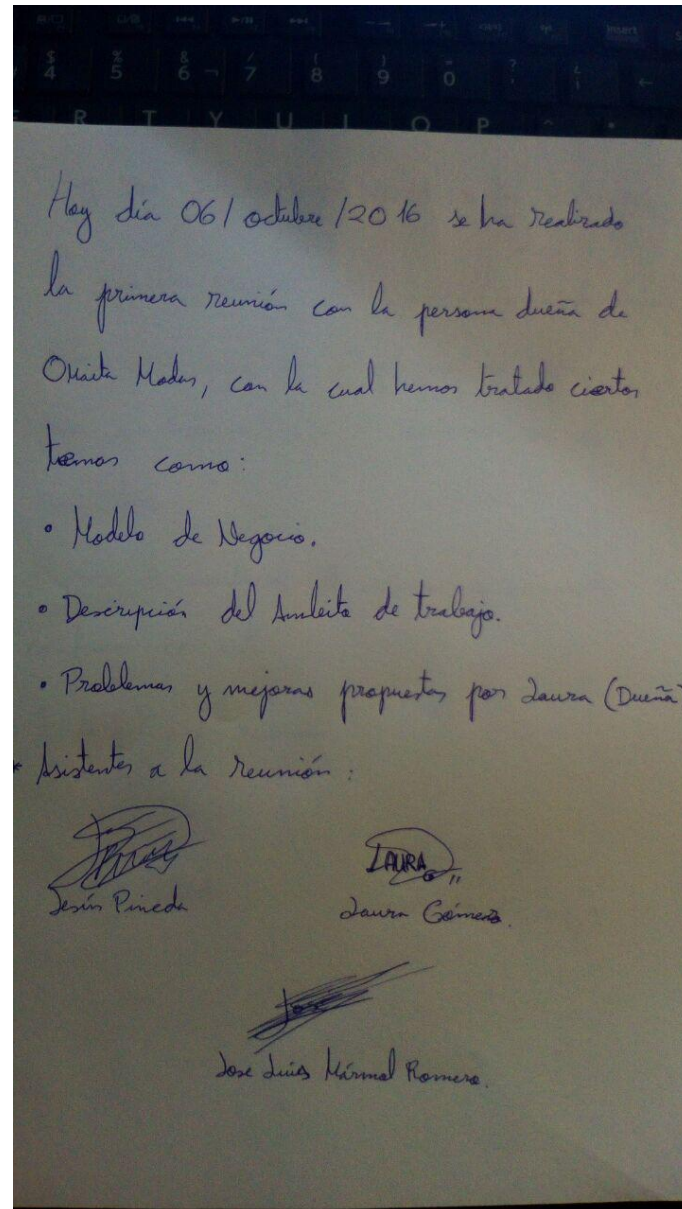 $ % & / ( ) =
4 5 6 ¬ 7 8 9 0
insert
R T Y U I O P
Hoy día 06/octubre/2016 se ha realizado
la primera reunión con la persona dueña de
Modas, con la cual hemos tratado ciertos
temas como:
• Modelo de Negocio.
• Descripción del Ambito de trabajo.
• Problemas y mejoras propuestas por Laura (Dueña)
* Asistentes a la reunión:
LAURA
Jesús Pineda Laura
Jose
Jose Luis Mármol Romero.